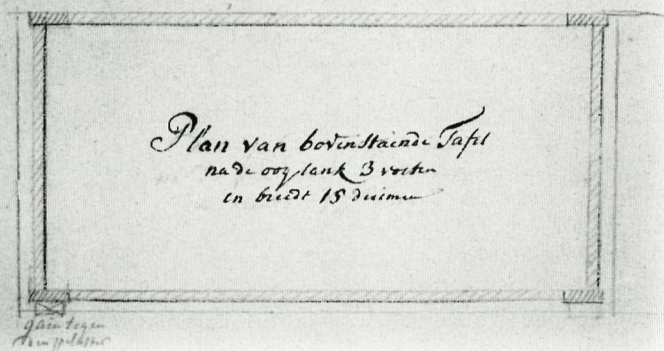 Plan van bovenstaende Tafel
na de oog lank 3 voeten
en breedt 15 duimen
gaen tegen